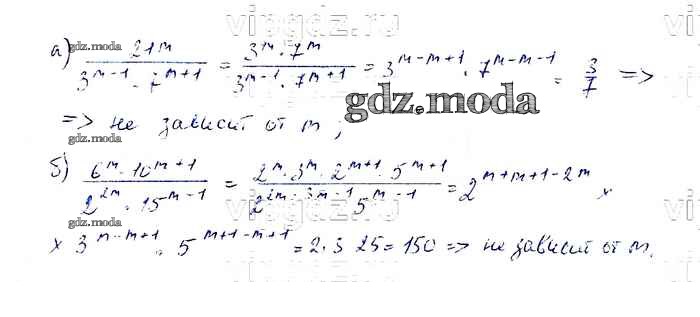 vipgdz.ru
а) 21^m / (3^(m-1) · 7^(m+1)) = (3^m · 7^m) / (3^(m-1) · 7^(m+1)) = 3^(m-m+1) · 7^(m-m-1) = 3/7 =>
gdz.moda
gdz.moda
=> не зависит от m;
gdz.moda
б) (6^m · 10^(m+1)) / (2^(2m) · 15^(m-1)) = (2^m · 3^m · 2^(m+1) · 5^(m+1)) / (2^(2m) · 3^(m-1) 5^(m-1)) = 2^(m+m+1-2m) ×
gdz.moda
× 3^(m-m+1) · 5^(m+1-m+1) = 2 · 3 · 25 = 150 => не зависит от m.
vipgdz.ru